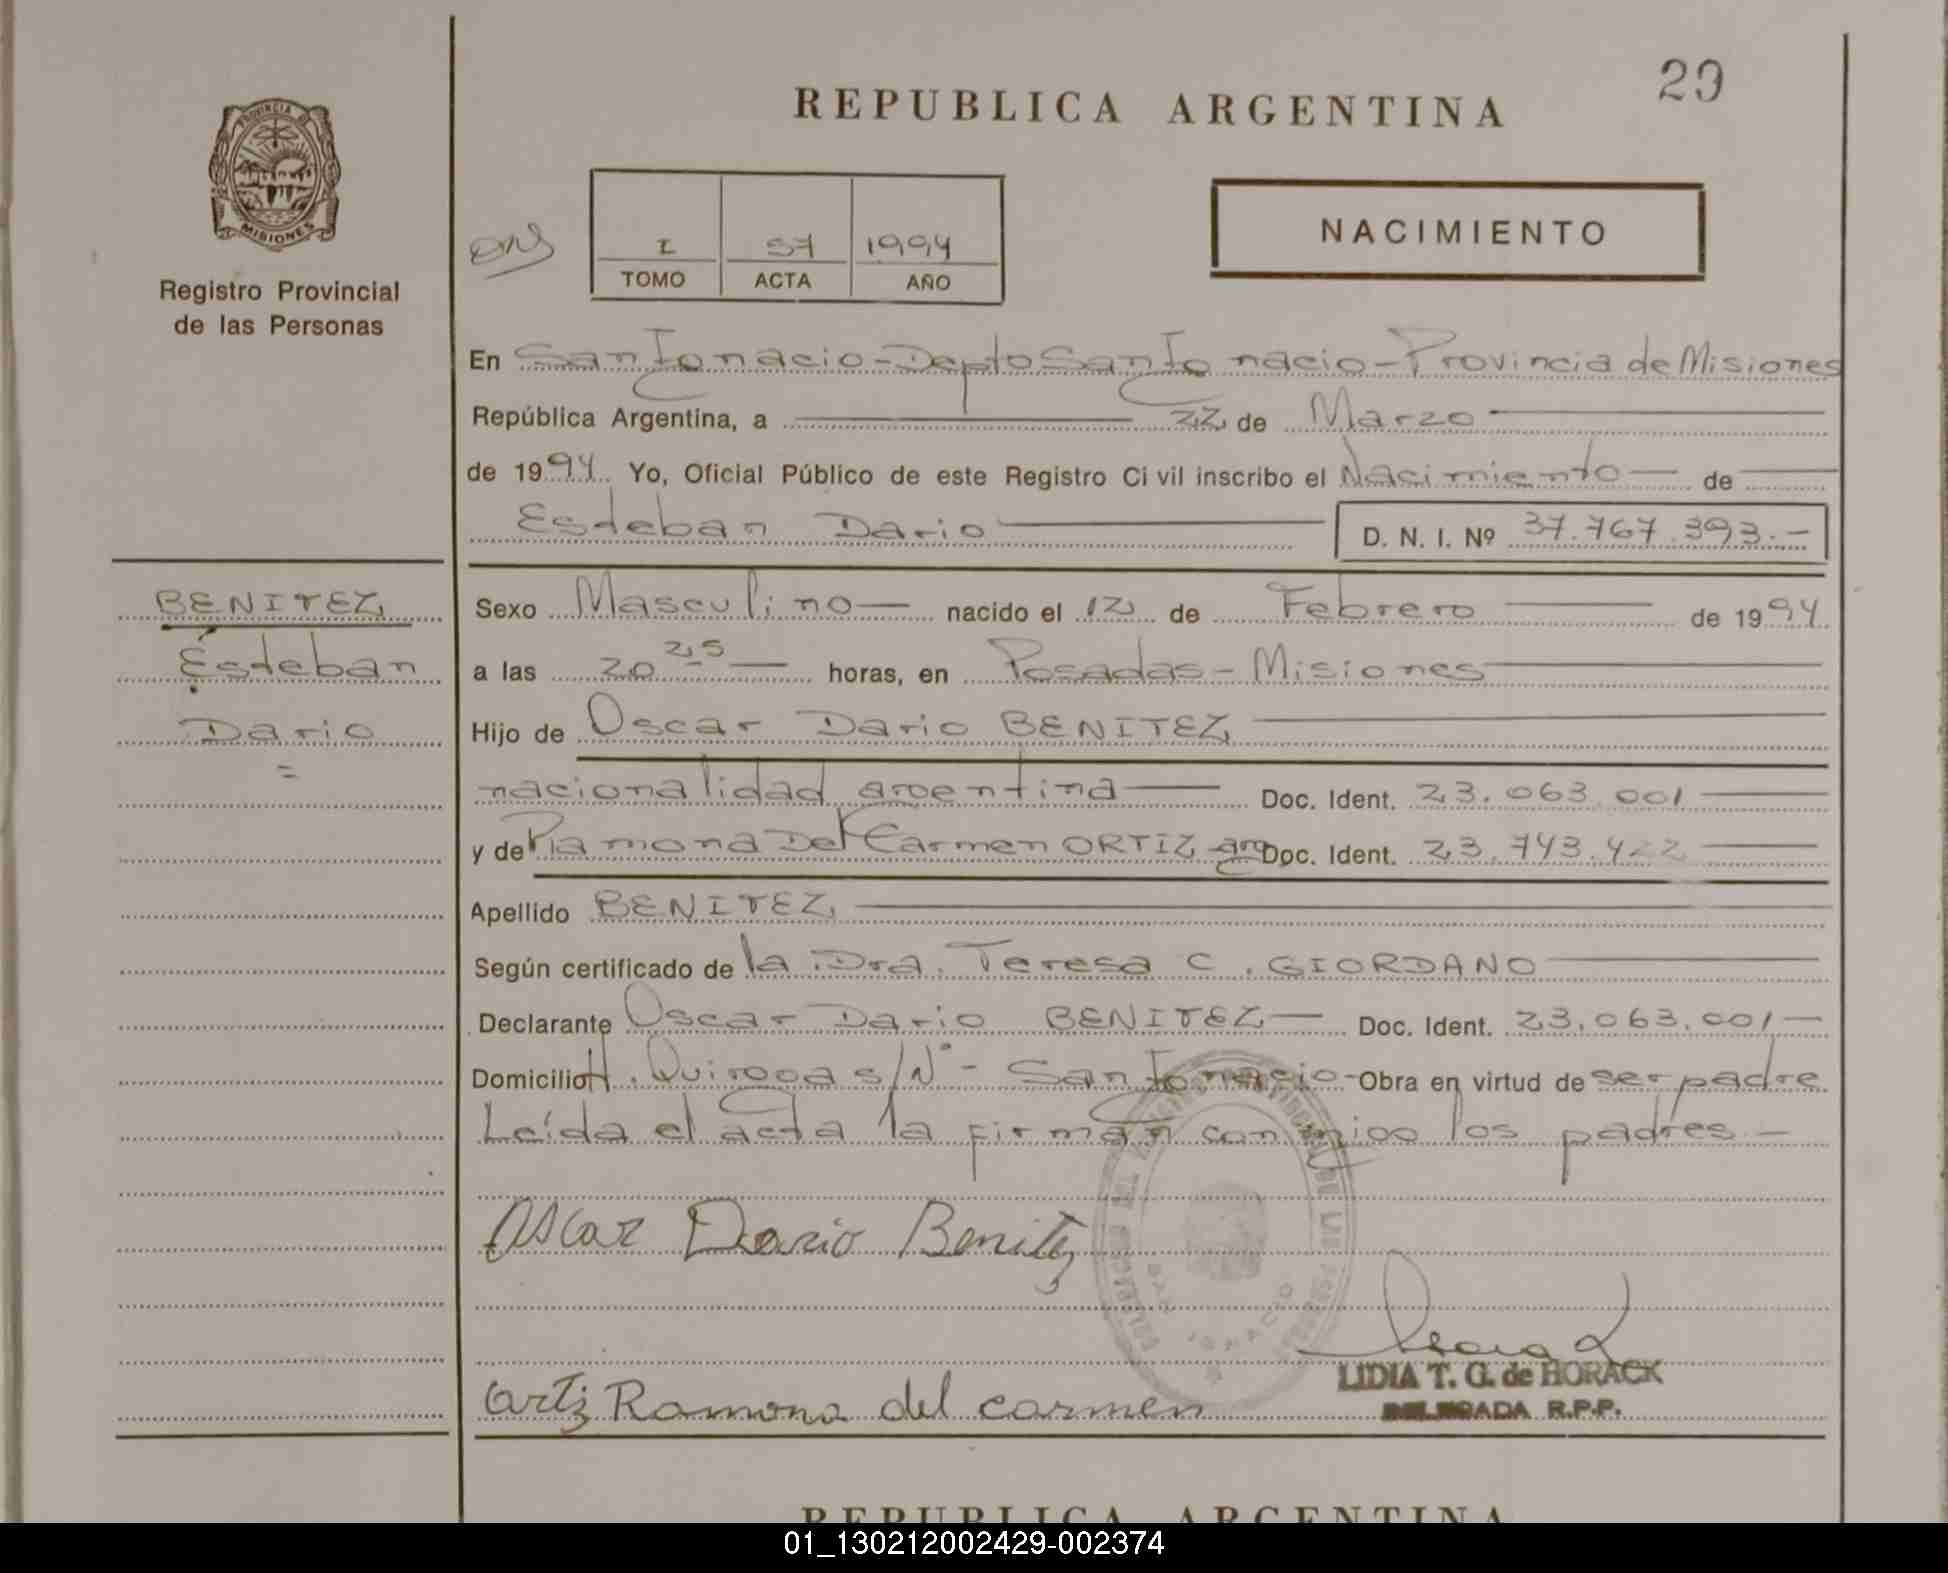 29
REPUBLICA ARGENTINA
PROVINCIA DE
MISIONES
Registro Provincial
de las Personas
I 57 1994
TOMO ACTA AÑO
NACIMIENTO
En San Ignacio - Depto San Ignacio - Provincia de Misiones
República Argentina, a 22 de Marzo
de 1994 Yo, Oficial Público de este Registro Civil inscribo el Nacimiento de
Esteban Dario D. N. I. Nº 37.767.393.-
BENITEZ
Esteban
Dario
=
Sexo Masculino nacido el 12 de Febrero de 1994
a las 20 25 horas, en Posadas - Misiones
Hijo de Oscar Dario BENITEZ
nacionalidad argentina Doc. Ident. 23.063.001
y de Ramona Del Carmen ORTIZ arg Doc. Ident. 23.743.422
Apellido BENITEZ
Según certificado de la Dra. Teresa C. GIORDANO
Declarante Oscar Dario BENITEZ Doc. Ident. 23.063.001
Domicilio H. Quiroga s/Nº - San Ignacio - Obra en virtud de ser padre
Leída el acta la firman conmigo los padres -
Oscar Dario Benitez
SAN IGNACIO
LIDIA T. G. de HORACK
DELEGADA R.P.P.
Ortiz Ramona del carmen
REPUBLICA ARGENTINA
01_130212002429-002374